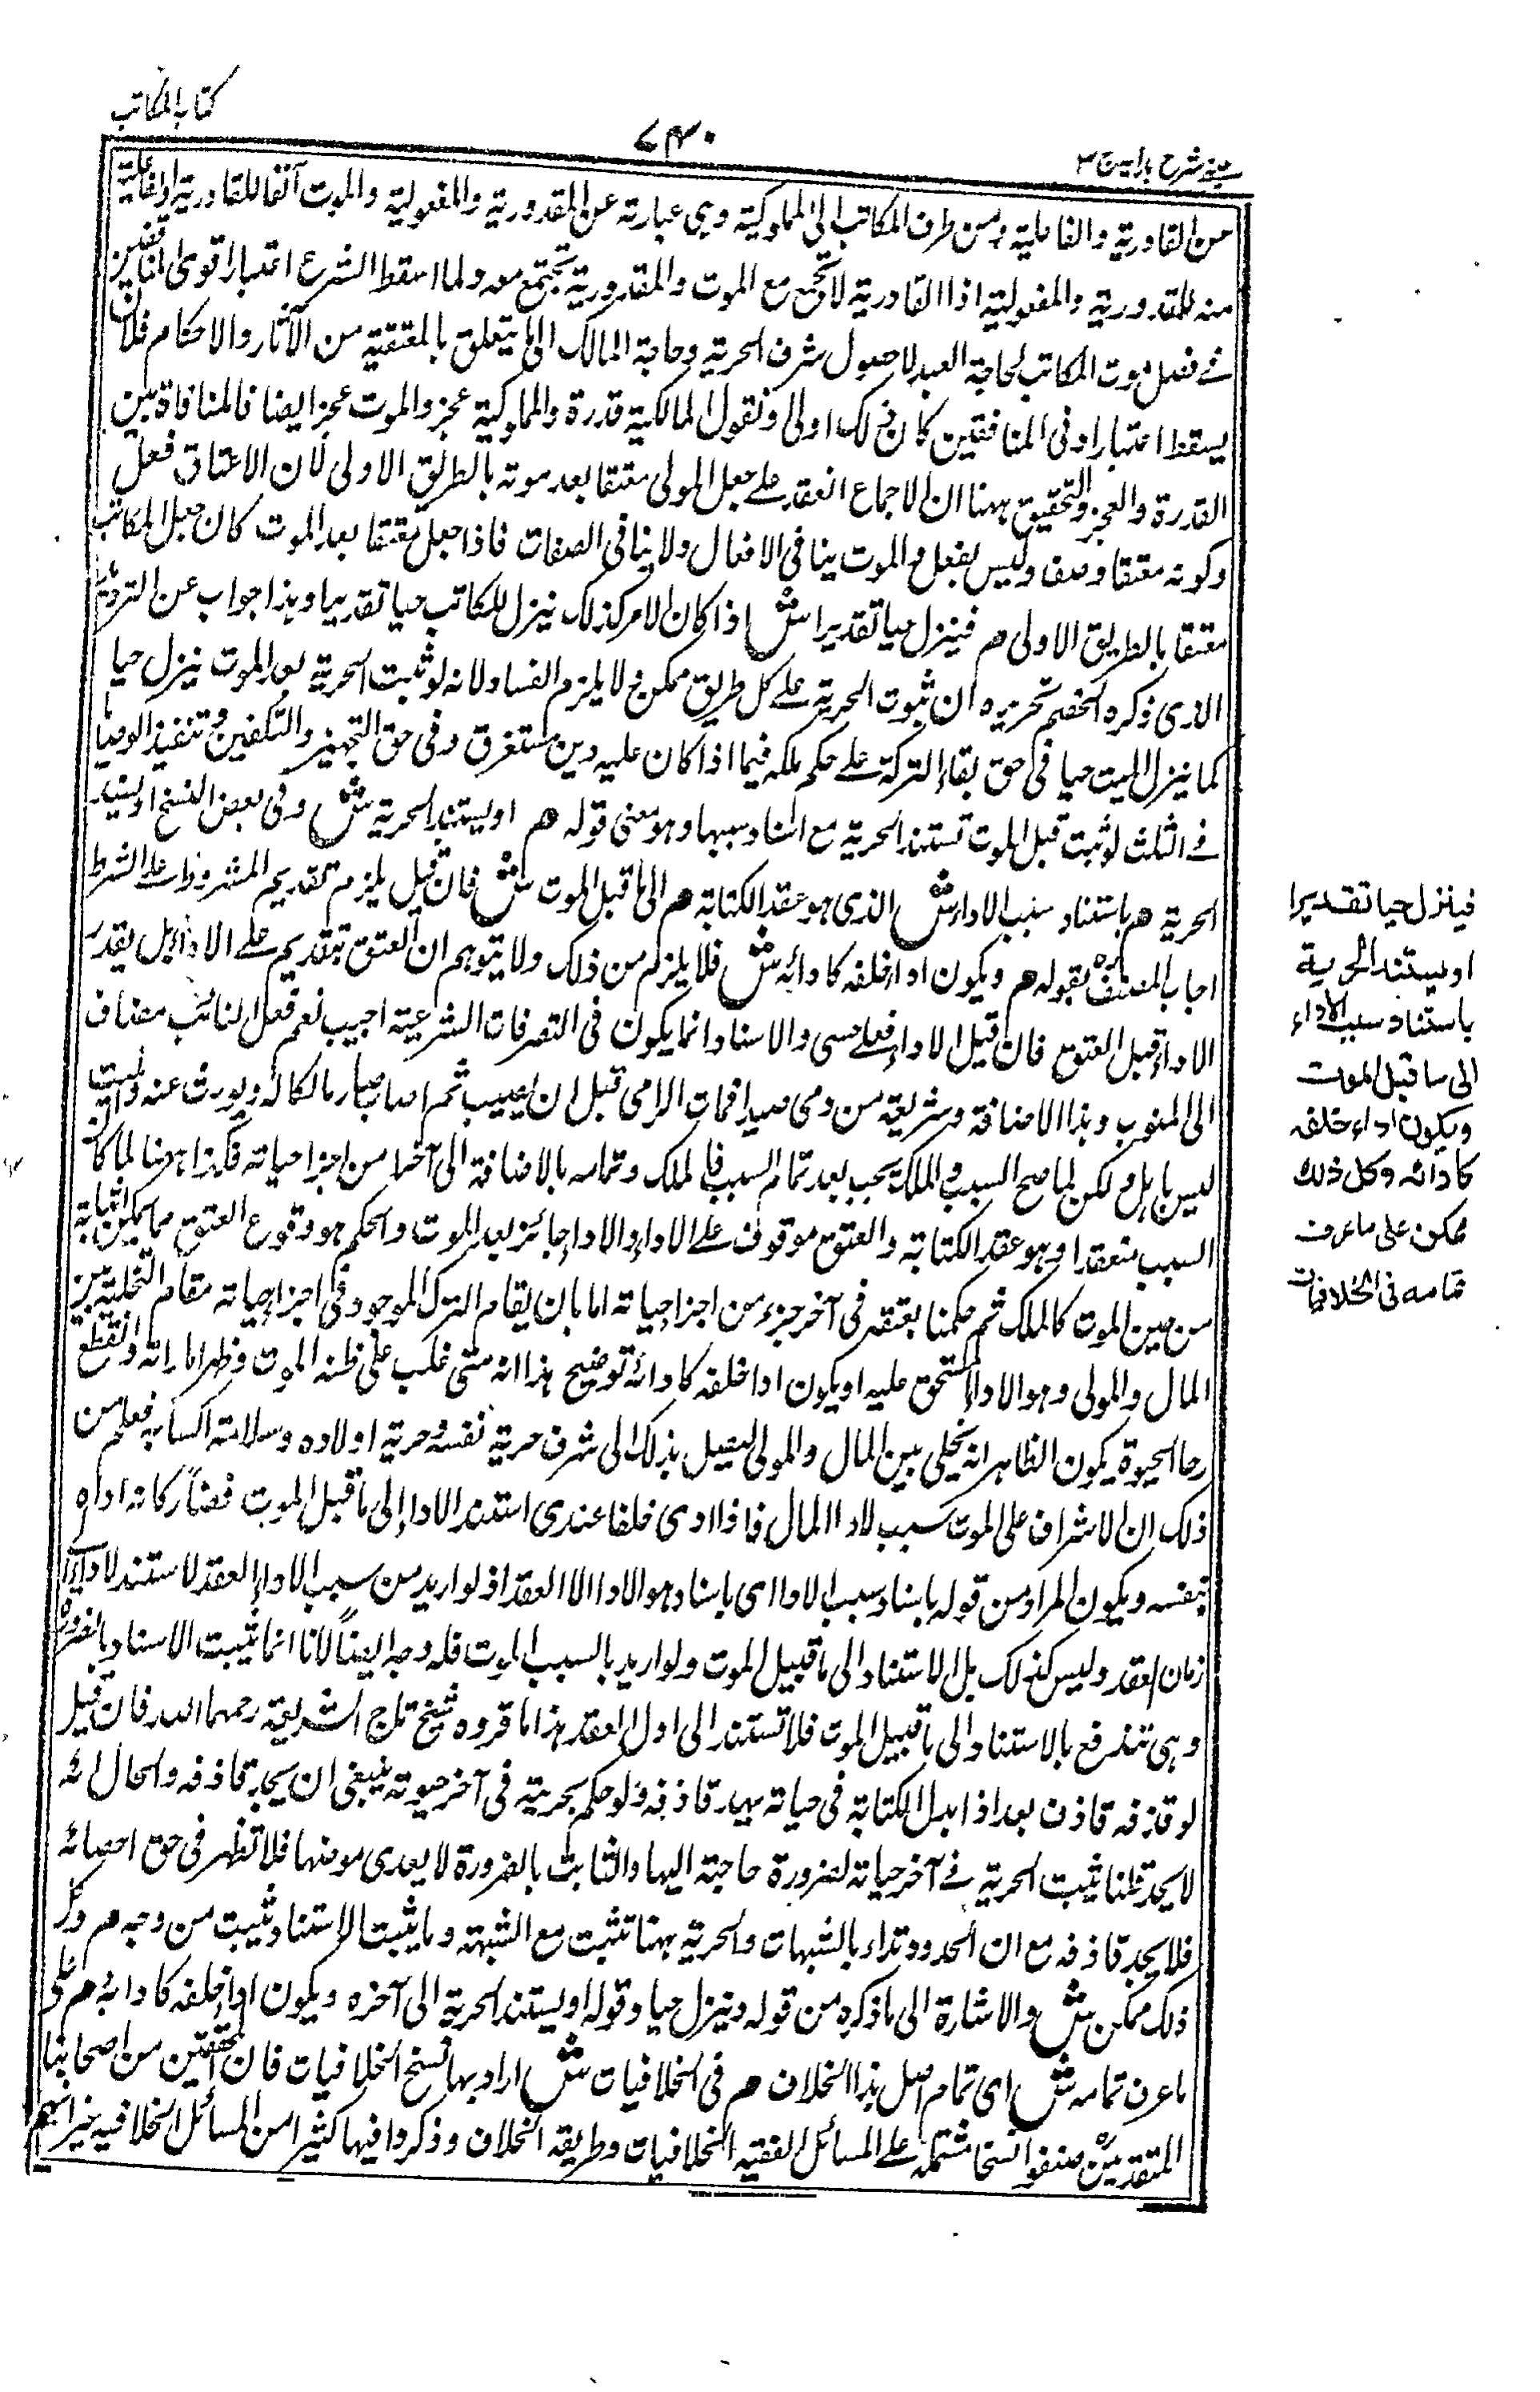 كتاب المكاتب
٧٣٠
عينى شرح هداية ج ٣
من القادرية والفاعلية ومن طرف المكاتب الى المملوكية وهي عبارته عن المقدورية والمفعولية والموت آنفا للقادرية والفاعلية
منه للمقدورية والمفعولية اذا القادرية لا تجتمع مع الموت والمقدورية تجتمع معه ولما اسقط الشرع اعتبار اقوى المنافيين
في فصل موت المكاتب لحاجة العبد لاحصول شرف الحرية وحاجة المالك الى ما يتعلق بالمعتقية من الآثار والاحكام فلان
يسقط اعتبار ادنى المنافقين كان ذلك اولى ونقول المالكية قدرة والمملوكية عجز والموت عجز ايضا فالمنافاة بين
القدرة والعجز والتحقيق ههنا ان الاجماع انعقد على جعل المولى معتقا بعد موته بالطريق الاولى لان الاعتاق فعل
وكونه معتقا وصف وليس بفعل والموت ينافى الافعال ولا ينافى الصفات فاذا جعل معتقا بعد الموت كان جعل المكاتب
معتقا بالطريق الاولى م فينزل حيا تقديرا ش اذا كان الامر كذلك ينزل للمكاتب حيا تقديرا وهذا جواب عن الترديد
الذى ذكره الخصم تحريره ان ثبوت الحرية على كل طريق ممكن ولا يلزم الفساد لانه لو ثبت الحرية بعد الموت ينزل حيا
كما ينزل الميت حيا فى حق بقاء التركة على حكم ملكه فيما اذا كان عليه دين مستغرق وفى حق التجهيز والتكفين وتنفيذ الوصايا
فى الثلث لو ثبت قبل الموت تستند الحرية مع استناد سببها وهو معنى قوله م او يستند الحرية ش وفى بعض النسخ او يستند
الحرية م باستناد سبب الاداء ش الذى هو عقد الكتابة م الى ما قبل الموت ش فان قيل يلزم تقديم المشروط على الشرط
اجاب المصنف بقوله م ويكون اداء خلفه كادائه ش فلا يلزم من ذلك ولا يتوهم ان العتق يتقدم على الاداء بل يقدر
الاداء قبل العتق فان قيل الاداء فعل حسى والاسناد انما يكون فى التصرفات الشرعية اجيب نعم فعل النائب مضاف
الى المنوب وهذا الاضافة وشريعة من رمى صيدا فمات الرامى قبل ان يصيب ثم اصاب صار مالكا له ويورث عنه والميت
ليس باهل ولكن لما صح السبب والملك يجب بعد تمام السبب فالملك وتمامه بالاضافة الى آخر من اجزاء حياته فكذا ههنا لما كان
السبب منعقدا وهو عقد الكتابة والعتق موقوف على الاداء والاداء جائز بعد الموت والحكم هو وقوع العتق مما يمكن اثباته
من حين الموت كالملك ثم حكمنا بعتقه فى آخر جزء من اجزاء حياته اما بان يقام الترك الموجود فى اجزاء حياته مقام التخلية بين
المال والمولى وهو الاداء المستحق عليه او يكون اداء خلفه كادائه توضيح هذا انه متى غلب على ظنه الموت وظهر اماراته وانقطع
رجاء الحيوة يكون الظاهر انه يخلى بين المال والمولى ليصل بذلك الى شرف حرية نفسه وحرية اولاده وسلامة اكسابه فعلم من
ذلك ان الاشراف على الموت سبب لاداء المال فاذا ادى خلفا عندى استند الاداء الى ما قبل الموت فصار كانه اداه
بنفسه ويكون المراد من قوله باسناد سبب الاداء اى باسناد هو الاداء الا العقد اذ لو اريد من سبب الاداء العقد لاستند الاداء الى
زمان العقد وليس كذلك بل الاستناد الى ما قبيل الموت ولو اريد بالسبب الموت فله وجه ايضاً لانا انما نثبت الاسناد بالضرورة
وهى تندفع بالاستناد الى ما قبيل الموت فلا تستند الى اول العقد هذا ما قروه شيخ تاج الشريعة رحمهما الله فان قيل
لو قذفه قاذف بعد اداء بدل الكتابة فى حياته يحد قاذفه ولو حكم بحريته فى آخر حيوته ينبغى ان يحد قاذفه والحال انه
لا يحد قلنا ثبت الحرية فى آخر حياته لضرورة حاجته اليها والثابت بالضرورة لا يعدى موضعها فلا تظهر فى حق احصانه
فلا يحد قاذفه مع ان الحدود تدراء بالشبهات والحرية ههنا تثبت مع الشبهة وما يثبت الاستناد ثبيت من وجه م وكل
ذلك ممكن ش والاشارة الى ما ذكره من قوله وينزل حيا وقوله او يستند الحرية الى آخره ويكون اداء خلفه كادائه م على
ما عرف تمامه ش اى تمام اصل هذا الخلاف م فى الخلافيات ش اراد بها نسخ الخلافيات فان المحققين من اصحابنا
المتقدمين صنفوا نسخا مشتملة على المسائل الفقيه الخلافيات وطريقه الخلاف وذكروا فيها كثيرا من المسائل الخلافيه غير انهم
فينزل حيا تقديرا
او يستند الحرية
باستناد سبب الاداء
الى ما قبل الموت
ويكون اداء خلفه
كادائه وكل ذلك
ممكن على ما عرف
تمامه فى الخلافيات